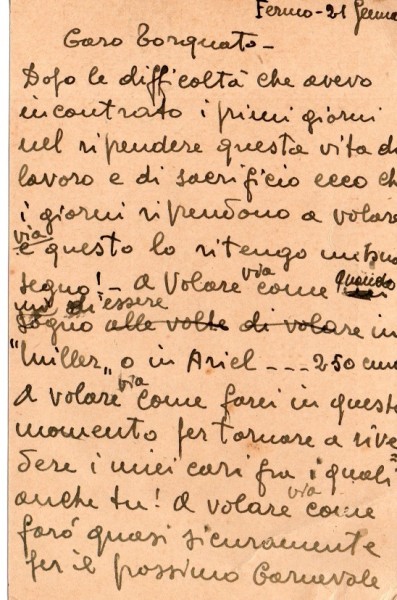 Fermo - 21 Genna
Caro Torquato -
Dopo le difficoltà che avevo
incontrato i primi giorni
nel ripendere questa vita di
lavoro e di sacrificio ecco ch
i giorni riprendono a volare
via
e questo lo ritengo un buo
segno! - A Volare via come quando
essere
sogno alle volte di volare in
"Miller" o in Ariel --- 250 cmc
A volare via come farei in quest
momento per tornare a rive=
dere i miei cari fra i quali
anche tu! A volare via come
farò quasi sicuramente
per il prossimo Carnevale